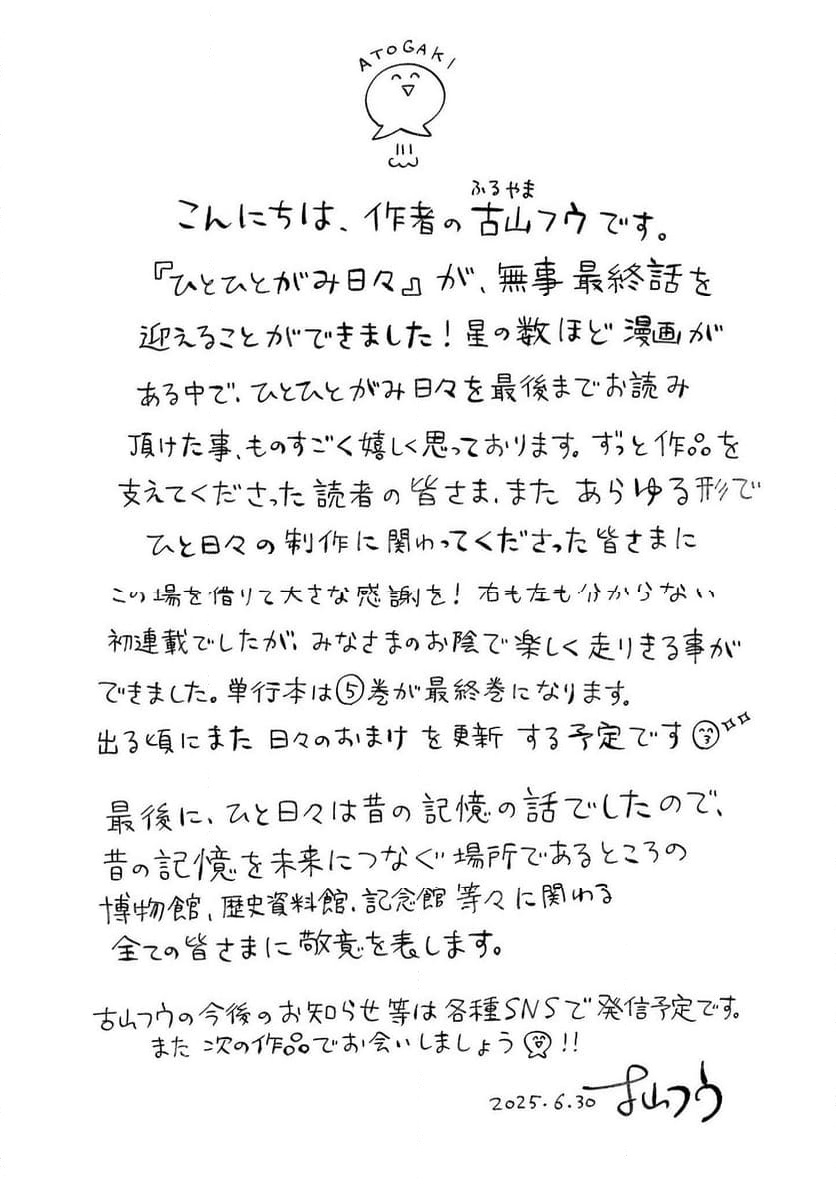 ATOGAKI
ふるやま
こんにちは、作者の古山フウです。
『ひとひとがみ日々』が、無事最終話を
迎えることができました！星の数ほど漫画が
ある中で、ひとひとがみ日々を最後までお読み
頂けた事、ものすごく嬉しく思っております。ずっと作品を
支えてくださった読者の皆さま、また あらゆる形で
ひと日々の制作に関わってくださった皆さまに
この場を借りて大きな感謝を！右も左も分からない
初連載でしたが、みなさまのお陰で楽しく走りきる事が
できました。単行本は⑤巻が最終巻になります。
出る頃にまた 日々のおまけ を更新 する予定です
最後に、ひと日々は昔の記憶の話でしたので、
昔の記憶を未来につなぐ場所であるところの
博物館、歴史資料館、記念館 等々に関わる
全ての皆さまに敬意を表します。
古山フウの今後のお知らせ等は各種SNSで発信予定です。
また 次の作品でお会いしましょう!!
2025.6.30 古山フウ